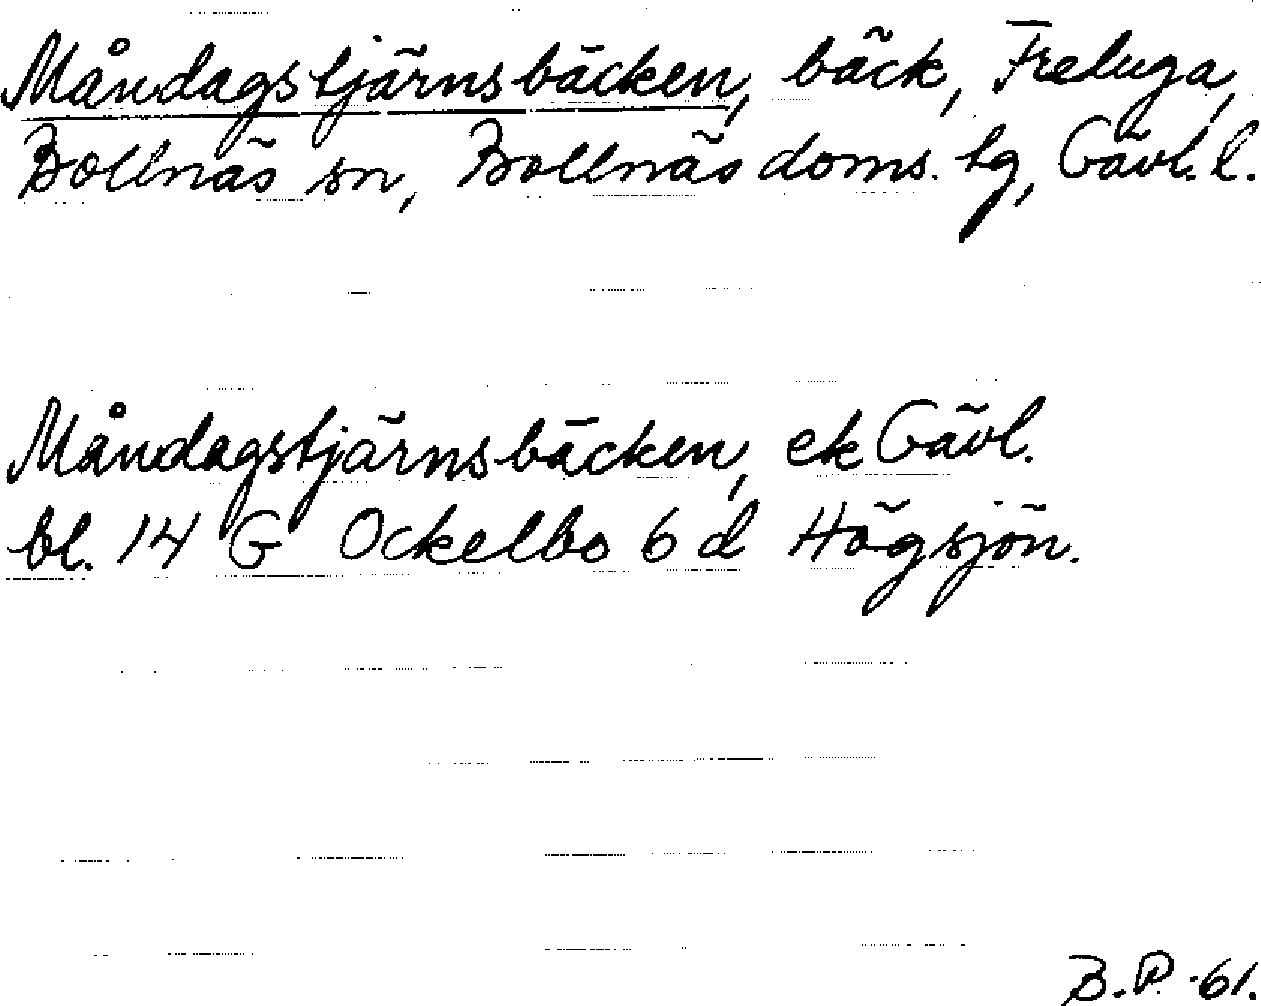 Måndagstjärnsbäcken, bäck, Freluga,
Bollnäs sn, Bollnäs doms. tg, Gävl. l.
Måndagstjärnsbäcken, ek Gävl.
bl. 14 G Ockelbo 6 d Högsjön.
B.P. -61.